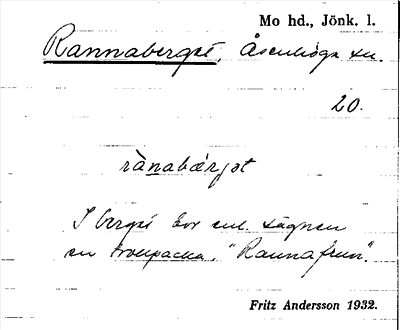 Mo hd., Jönk. l.
Rannaberget, Åsenhöga sn.
20.
rànabæ̀rjət
I berget bor enl. sägnen
en trollpacka, "Rannafrun".
Fritz Andersson 1932.